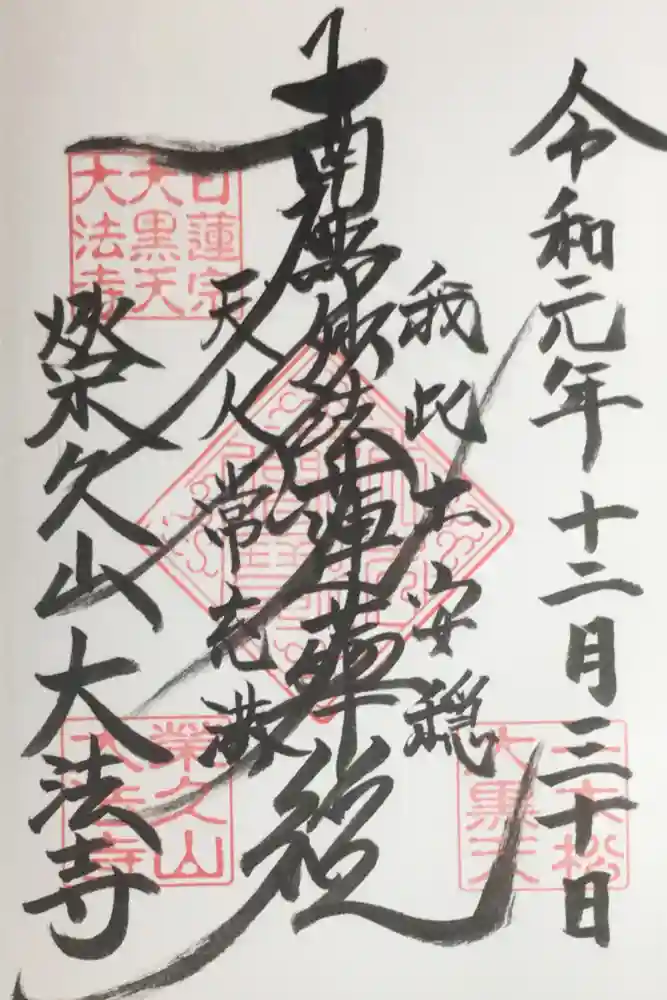 令和元年十二月三十日
我此土安穏
南無妙法蓮華経
天人常充満
榮久山大法寺
日蓮宗
大黒天
大法寺
榮久山
大法寺
大黒天